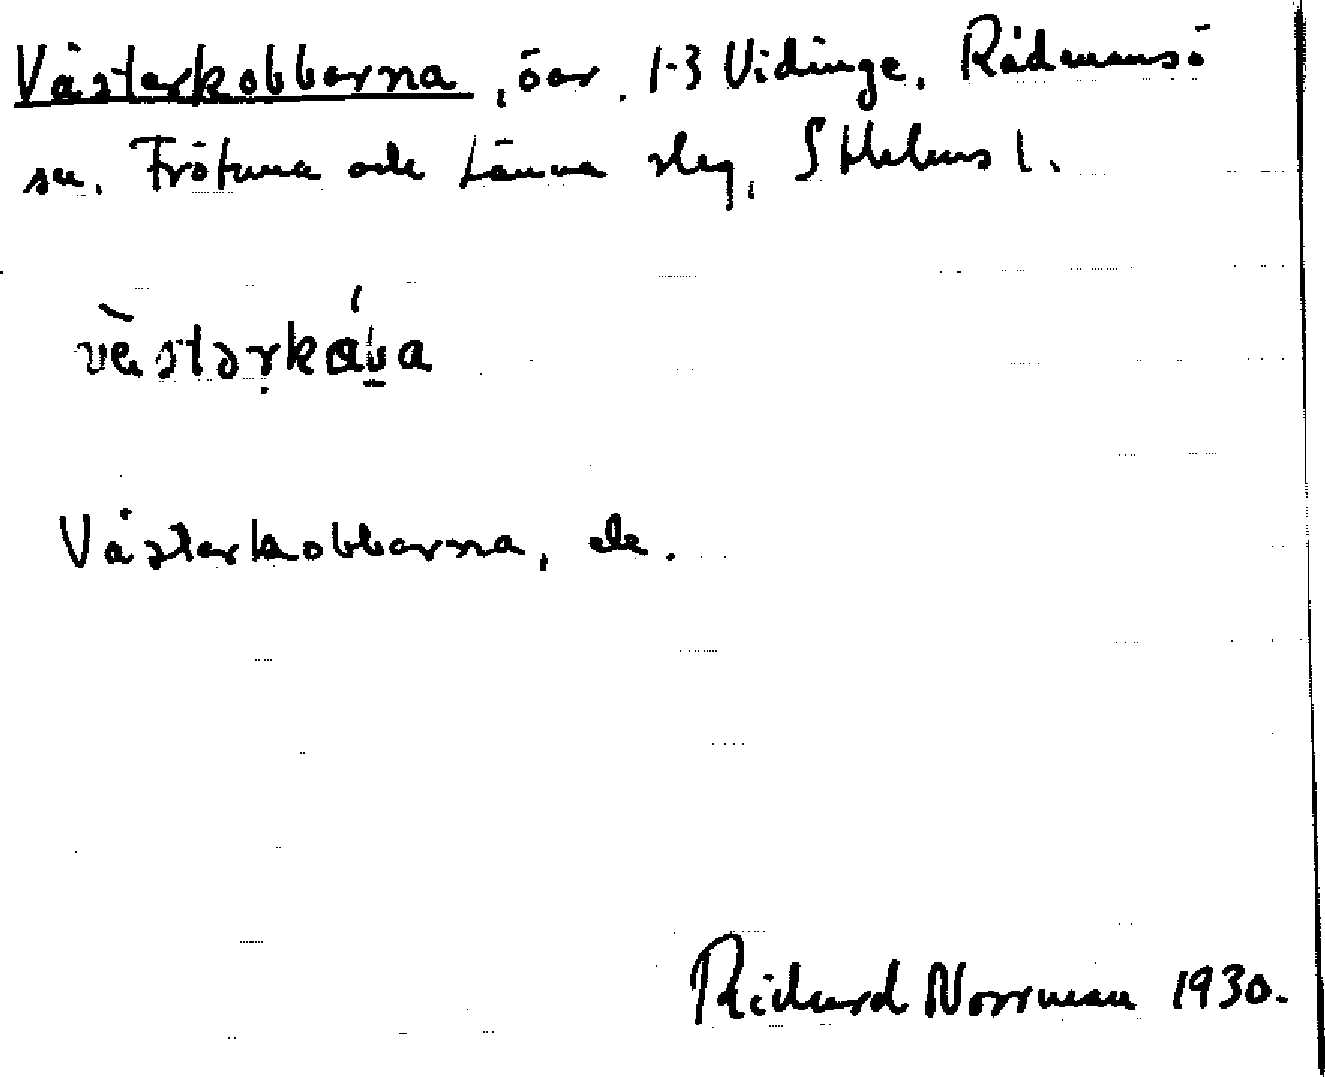 Västerkobbarna, öar, 1-3 Vidinge, Rådmansö
sn. Frötuna och Länna slg, Sthlms l.
Västerkobbarna, ek.
Richard Norrman 1930.